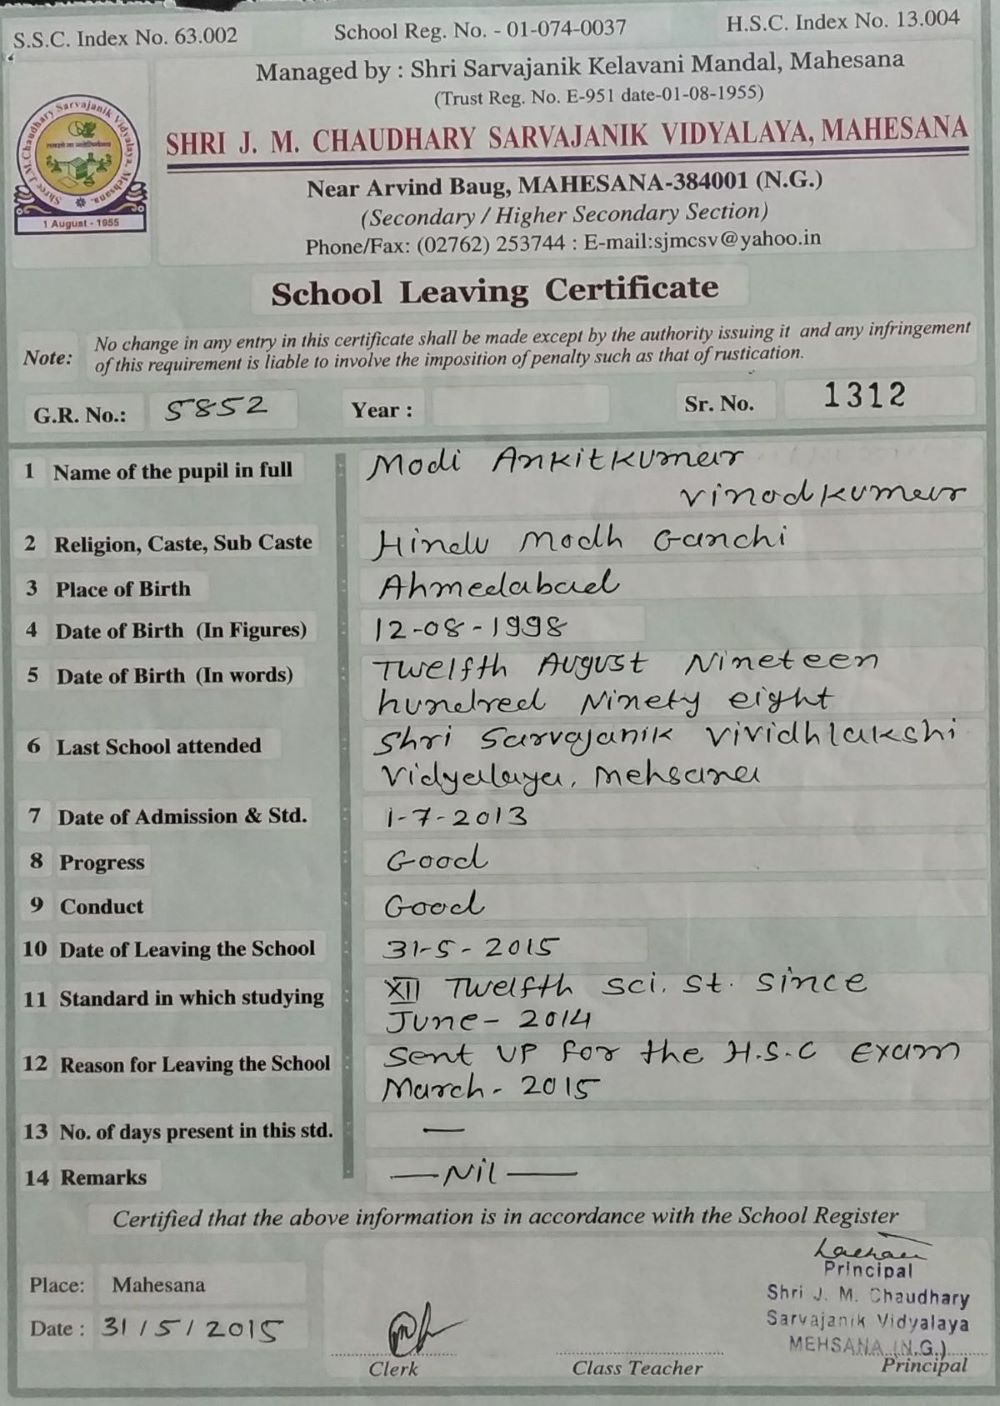 S.S.C. Index No. 63.002
School Reg. No. - 01-074-0037
H.S.C. Index No. 13.004
Managed by : Shri Sarvajanik Kelavani Mandal, Mahesana
(Trust Reg. No. E-951 date-01-08-1955)
SHRI J. M. CHAUDHARY SARVAJANIK VIDYALAYA, MAHESANA
Near Arvind Baug, MAHESANA-384001 (N.G.)
(Secondary / Higher Secondary Section)
Phone/Fax: (02762) 253744 : E-mail:sjmcsv@yahoo.in
Shree J.M.Chaudhary Sarvajanik Vidyalaya, Mehsana.
1 August - 1955
School Leaving Certificate
Note: No change in any entry in this certificate shall be made except by the authority issuing it and any infringement
of this requirement is liable to involve the imposition of penalty such as that of rustication.
G.R. No.: 5852 Year : Sr. No. 1312
1 Name of the pupil in full Modi Ankitkumar
vinodkumar
2 Religion, Caste, Sub Caste Hindu Modh Ganchi
3 Place of Birth Ahmedabad
4 Date of Birth (In Figures) 12-08-1998
5 Date of Birth (In words) Twelfth August Nineteen
hundred Ninety eight
6 Last School attended Shri Sarvajanik Vividhlakshi
Vidyalaya, Mehsana
7 Date of Admission & Std. 1-7-2013
8 Progress Good
9 Conduct Good
10 Date of Leaving the School 31-5-2015
11 Standard in which studying XII Twelfth Sci. St. Since
June-2014
12 Reason for Leaving the School Sent UP for the H.S.C Exam
March-2015
13 No. of days present in this std. —
14 Remarks — Nil —
Certified that the above information is in accordance with the School Register
Place: Mahesana
Date : 31/5/2015
Principal
Shri J. M. Chaudhary
Sarvajanik Vidyalaya
MEHSANA (N.G.)
Clerk Class Teacher Principal